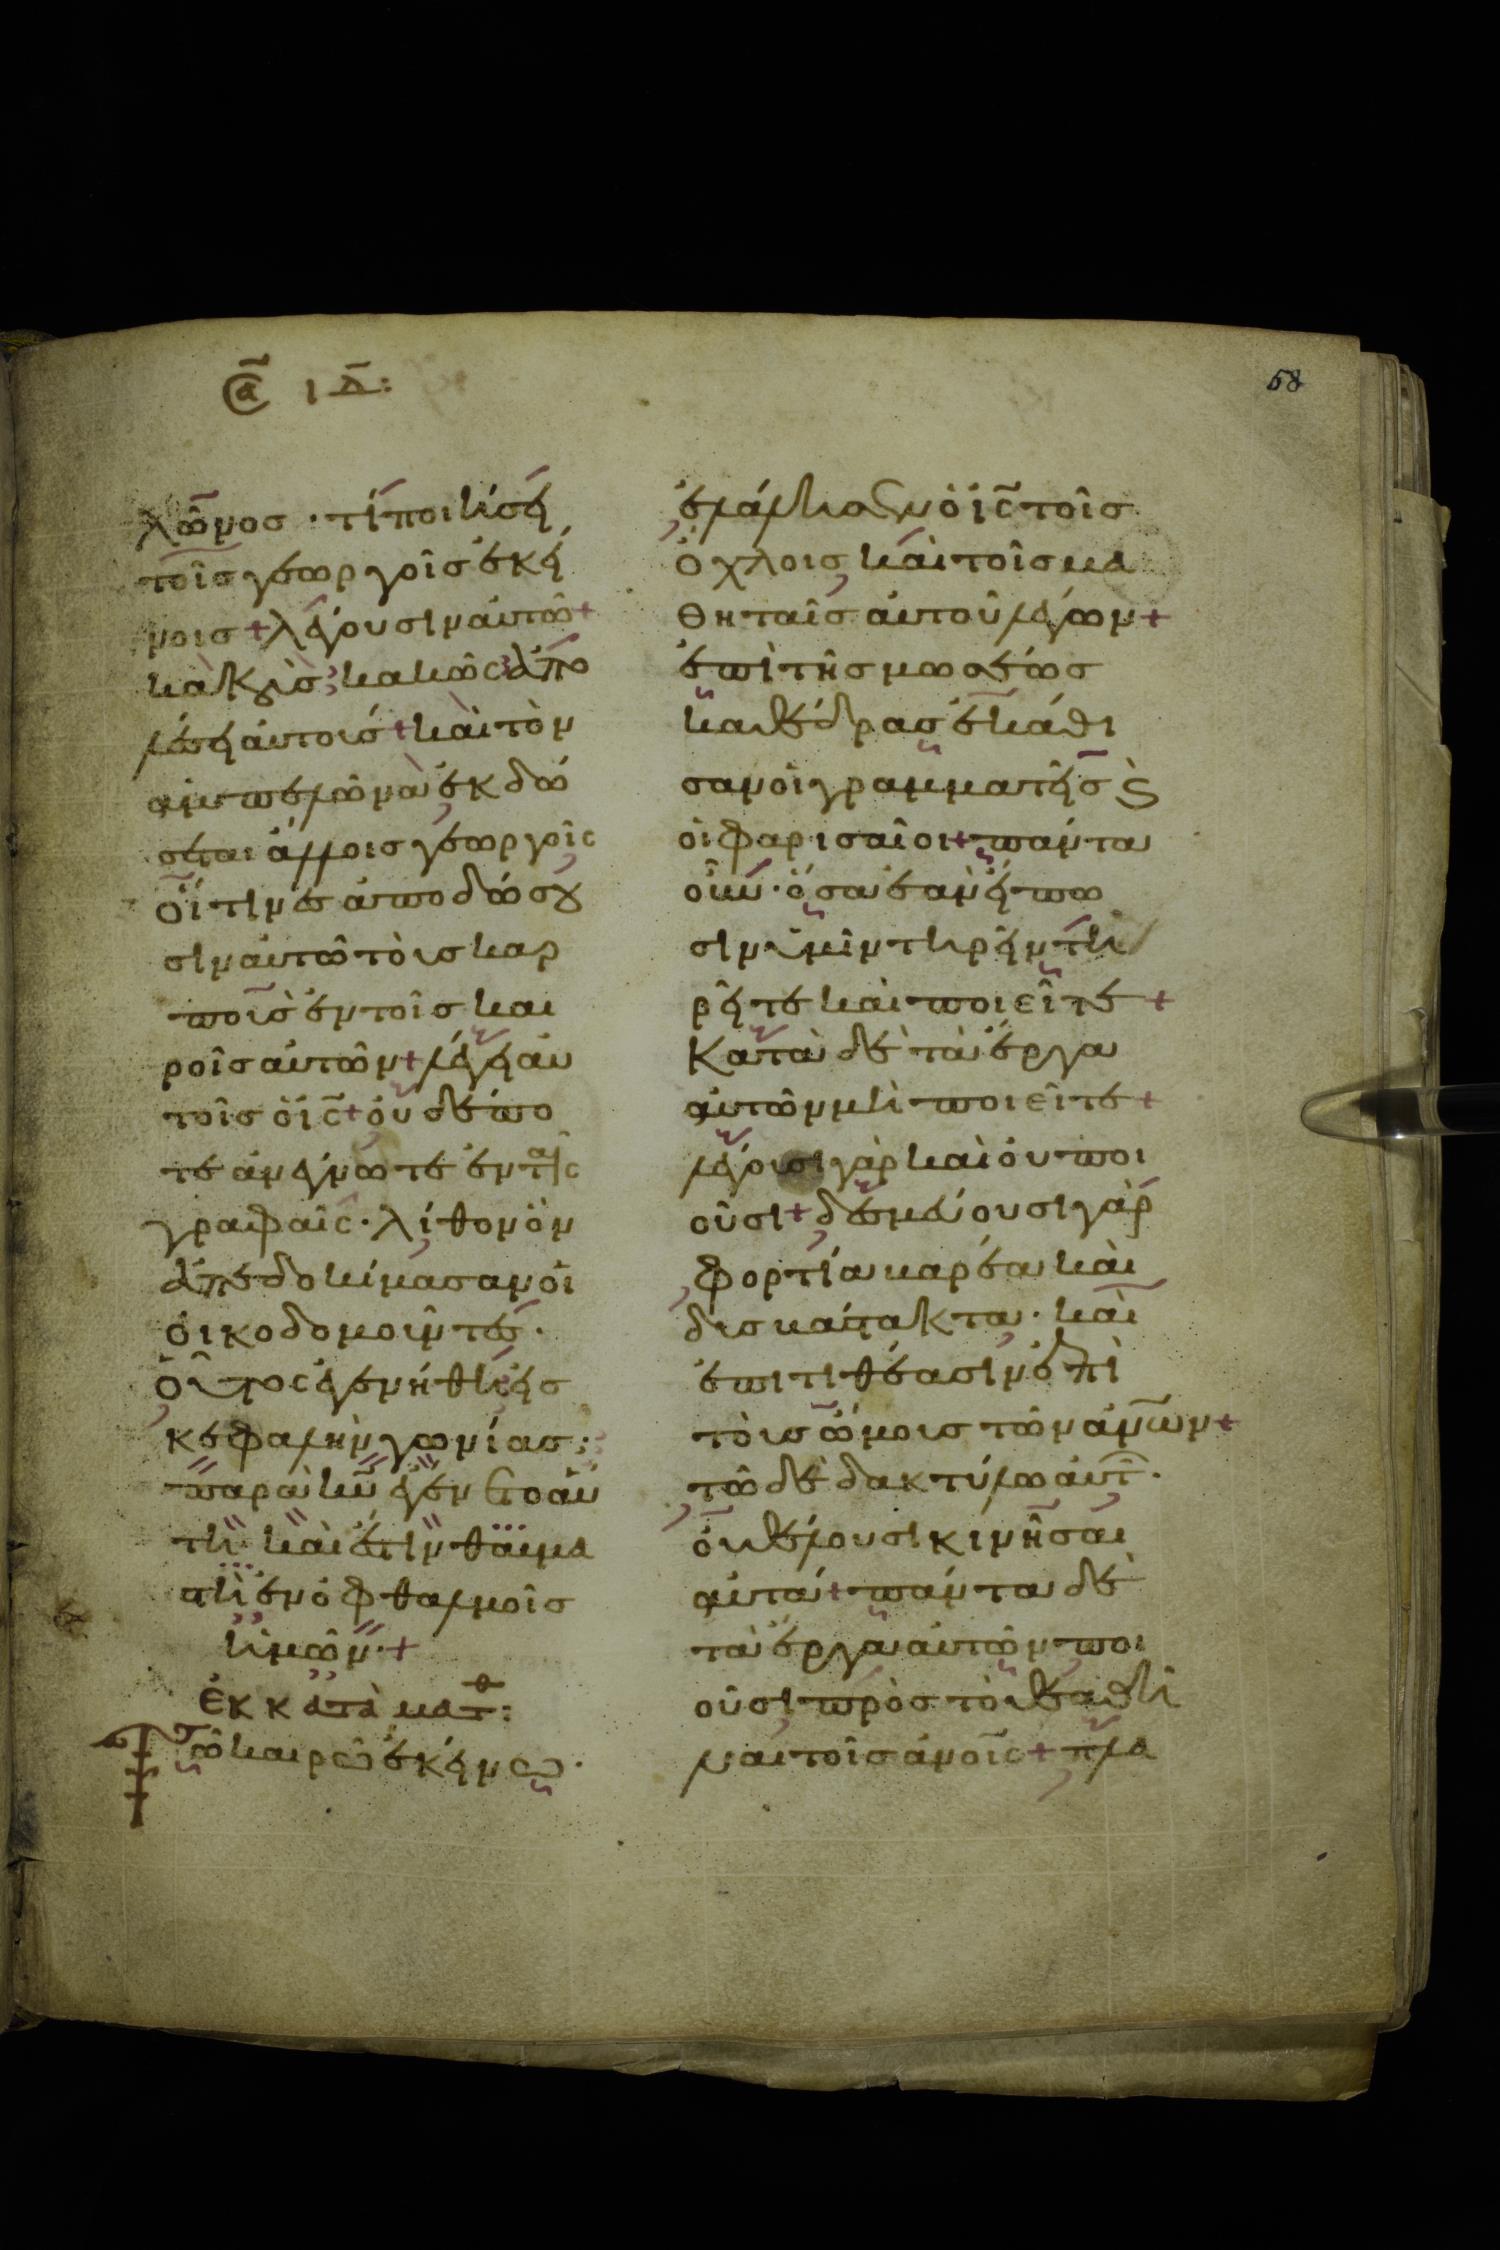 σα ιδ:
58
λῶνος · τί ποιήσει
τοῖς γεωργοῖς ἐκεί
νοις + λέγουσιν αὐτῶ +
κακοὺς κακῶς ἀπο
λέσει αὐτούς + καὶ τὸν
ἀμπελῶνα ἐκδώ
σεται ἄλλοις γεωργοῖς
οἵτινες ἀποδώσου
σιν αὐτῶ τοὺς καρ
ποὺς ἐν τοῖς και
ροῖς αὐτῶν + λέγει αὐ
τοῖς ὁ ις + οὐδέπο
τε ἀνέγνωτε ἐν ταῖς
γραφαῖς · λίθον ὃν
ἀπεδοκίμασαν οἱ
οἰκοδομοῦντες ·
οὗτος ἐγενήθη εἰς
κεφαλὴν γωνίας :
παρὰ κυ ἐγένετο αὕ
τη καὶ ἔστιν θαυμα
στὴ ἐν ὀφθαλμοῖς
ἡμῶν · +
ἐκ κατὰ ματθ :
Τῶ καιρῶ ἐκείνω ·
ἐλάλησεν ὁ ις τοῖς
ὄχλοις καὶ τοῖς μα
θηταῖς αὐτοῦ λέγων +
ἐπὶ τῆς μωσέως
καθέδρας ἐκάθι
σαν οἱ γραμματεῖς ϗ
οἱ φαρισαῖοι + πάντα
οὖν · ὅσα ἐὰν εἴπω
σιν ὑμῖν τηρεῖν τη
ρεῖτε καὶ ποιεῖτε +
Κατὰ δὲ τὰ ἔργα
αὐτῶν μὴ ποιεῖτε +
λέγουσι γὰρ καὶ οὐ ποι
οῦσι + δεσμεύουσι γὰρ
φορτία βαρέα καὶ
δυσβάστακτα · καὶ
ἐπιτιθέασιν ἐπὶ
τοὺς ὤμους τῶν ανων +
τῶ δὲ δακτύλω αὐτ ·
οὐ θέλουσι κινῆσαι
αὐτά + πάντα δὲ
τὰ ἔργα αὐτῶν ποι
οῦσι πρὸς τὸ θεαθῆ
ναι τοῖς ανοις + πλα